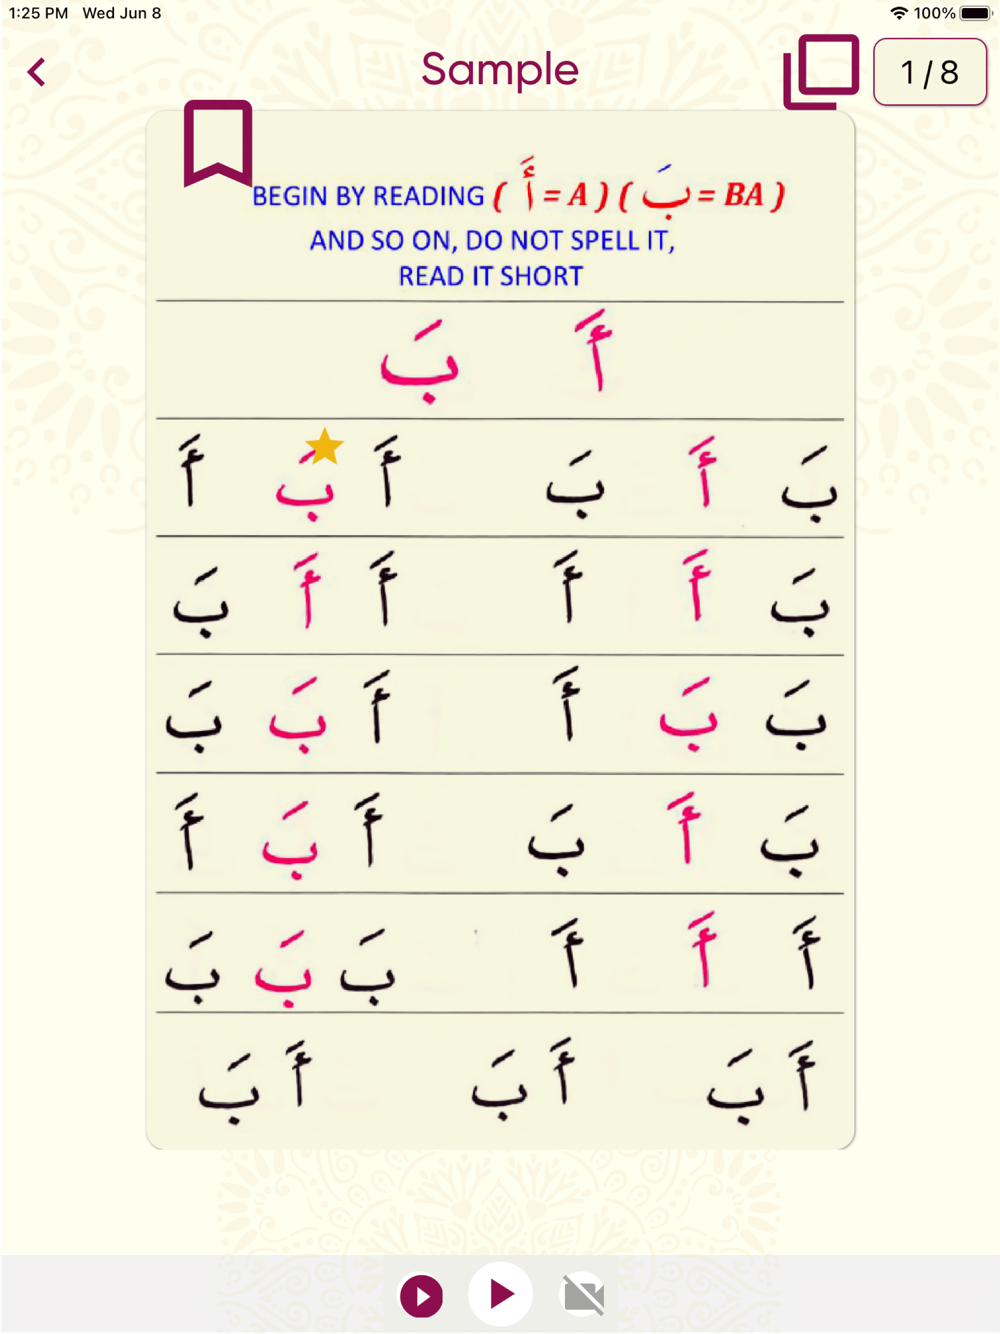 1:25 PM Wed Jun 8 100%
Sample 1 / 8
BEGIN BY READING ( أَ = A ) ( بَ = BA )
AND SO ON, DO NOT SPELL IT,
READ IT SHORT
أَ بَ
بَ أَ بَ أَ بَ أَ
بَ أَ أَ أَ أَ بَ
بَ بَ أَ أَ بَ بَ
بَ أَ بَ أَ بَ أَ
أَ أَ أَ بَ بَ بَ
أَ بَ أَ بَ أَ بَ